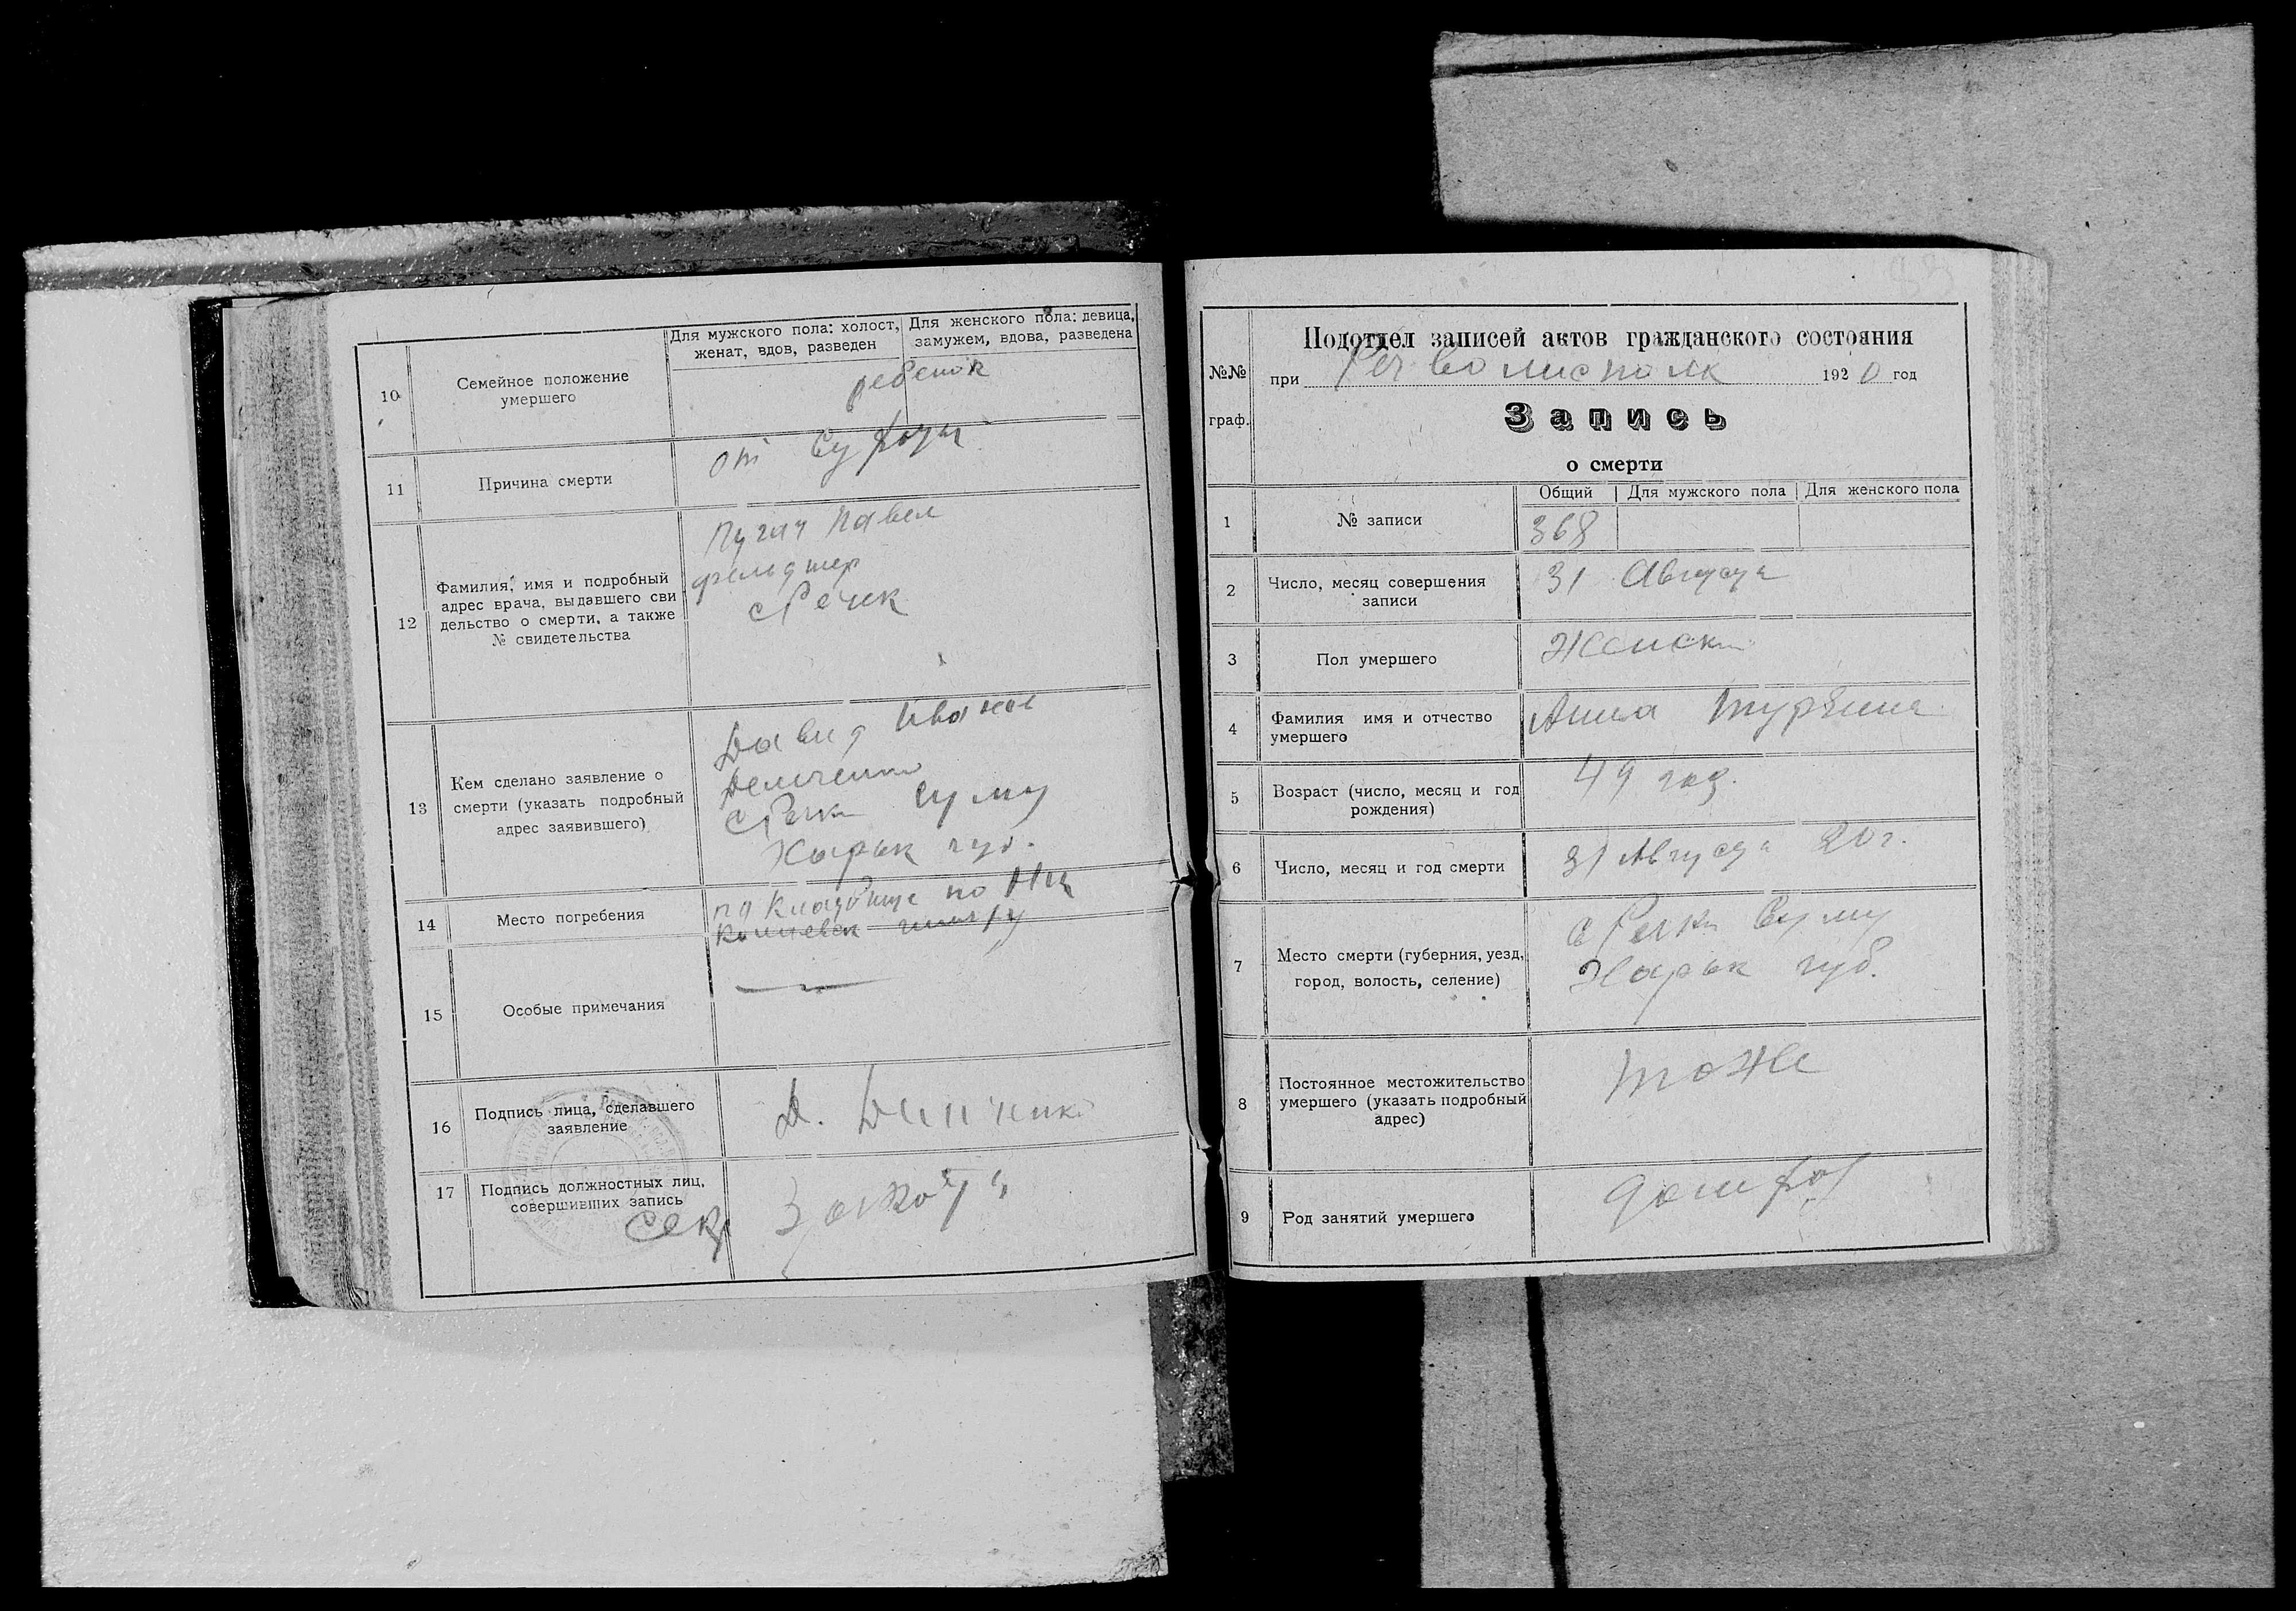 10
Семейное положение
умершего
Для мужского пола: холост,
женат, вдов, разведен
Для женского пола: девица,
замужем, вдова, разведена
ребенок
11
Причина смерти
от
12
Фамилия, имя и подробный
адрес врача, выдавшего сви
дельство о смерти, а также
№ свидетельства
Пугач Павел
фельдшер
с Речек
13
Кем сделано заявление о
смерти (указать подробный
адрес заявившего)
Давид Иванов
Демченко
с Речки Суму
Харьк губ.
14
Место погребения
на Кладбище по
15
Особые примечания
16
Подпись лица, сделавшего
заявление
Д. Демченко
17
Подпись должностных лиц,
совершивших запись
Секр
№№
граф.
Подотдел записей актов гражданского состояния
при Реч Волисполк 1920 год
Запись
о смерти
1
№ записи
Общий
Для мужского пола
Для женского пола
368
2
Число, месяц совершения
записи
31 Августа
3
Пол умершего
Женски
4
Фамилия имя и отчество
умершего
Анна Турбина
5
Возраст (число, месяц и год
рождения)
49 год.
6
Число, месяц и год смерти
31 Августа 20 г.
7
Место смерти (губерния, уезд,
город, волость, селение)
с Речки Суму
Харьк губ.
8
Постоянное местожительство
умершего (указать подробный
адрес)
тоже
9
Род занятий умершего